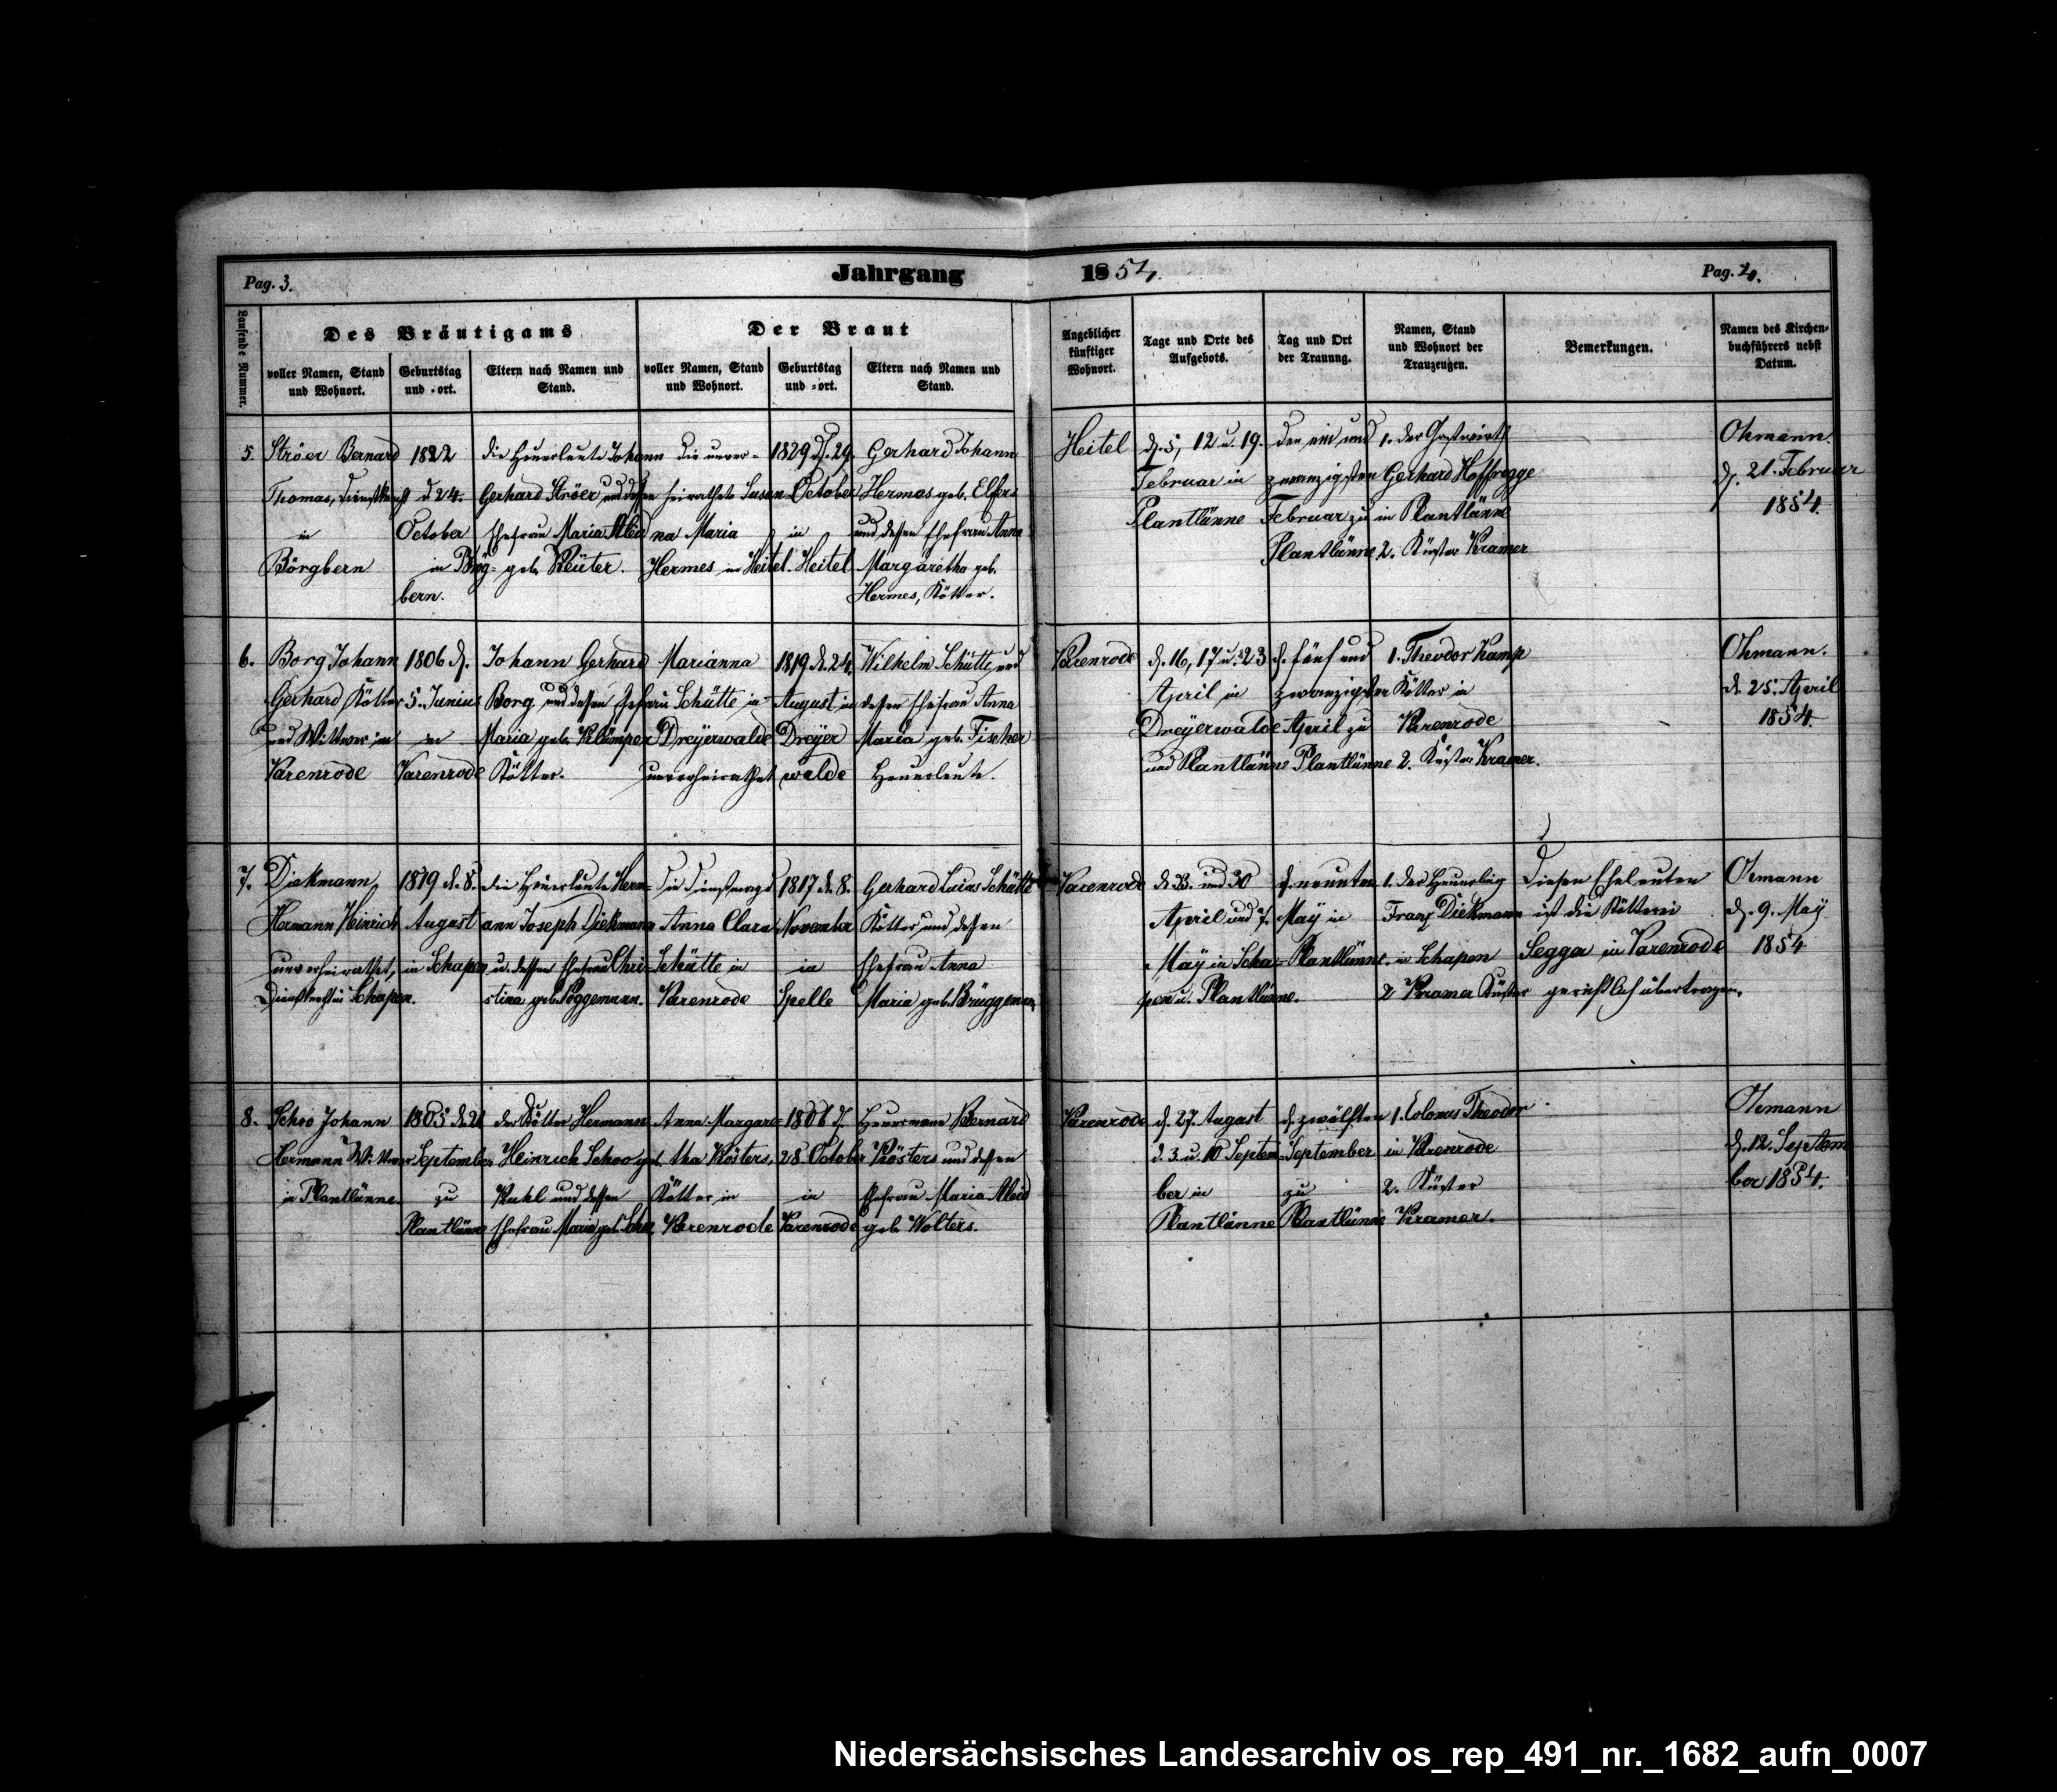 Pag. 3.
Jahrgang 1854.
Pag. 4.
Laufende Nummer.
Des Bräutigams
voller Namen, Stand
und Wohnort.
Geburtstag
und =ort.
Eltern nach Namen und
Stand.
Der Braut
voller Namen, Stand
und Wohnort.
Geburtstag
und =ort.
Eltern nach Namen und
Stand.
Angeblicher
künftiger
Wohnort.
Tage und Orte des
Aufgebots.
Tag und Ort
der Trauung.
Namen, Stand
und Wohnort der
Trauzeugen.
Bemerkungen.
Namen des Kirchen=
buchführers nebst
Datum.
5.
Ströer Bernard
Thomas, Dienstknecht
in
Börgbern
1822
d. 24.
October
in Börg=
bern.
die Heuerleute Johann
Gerhard Ströer und dessen
Ehefrau Maria Aleid
geb. Reüter.
die unver=
heirathete Susan
na Maria
Hermes in Heitel.
1829 d. 29.
October
in
Heitel
Gerhard Johann
Hermes geb. Elfers
und dessen Ehefrau Anna
Margaretha geb.
Hermes, Kötter.
Heitel
d. 5, 12 u. 19.
Februar in
Plantlünne
den ein und
zwanzigsten
Februar zu
Plantlünne
1. der Gastwirth
Gerhard Hoffregge
in Plantlünne
2. Küster Kramer
Ohmann.
d. 21. Februar
1854.
6.
Borg Johann
Gerhard Kötter
und Wittwer in
Varenrode
1806 d.
5. Junius
in
Varenrode
Johann Gerhard
Borg und dessen Ehefrau
Maria geb. Klümper
Kötter.
Marianna
Schütte in
Dreyerwalde
unverheirathet
1819 d. 24.
August in
Dreyer
walde
Wilhelm Schütte und
dessen Ehefrau Anna
Maria geb. Fischer
Heuerleute.
Varenrode
d. 16, 17 u. 23
April in
Dreyerwalde
und Plantlünne
d. fünf und
zwanzigsten
April zu
Plantlünne
1. Theodor Kamp
Kötter in
Varenrode
2. Küster Kramer.
Ohmann.
d. 25. April
1854.
7.
Diekmann,
Hermann Heinrich
unverheirathet,
Dienstknecht in Schapen.
1819 d. 8.
August
in Schapen
die Heuerleute Herm=
ann Joseph Diekmann
u. dessen Ehefrau Chri=
stina geb. Poggemann.
die Dienstmagd
Anna Clara
Schütte in
Varenrode
1817 d. 8.
November
in
Spelle
Gerhard Lucas Schütte
Kötter und dessen
Ehefrau Anna
Maria geb. Brüggemann
Varenrode
d. 23. und 30
April und 7.
May in Scha=
pen u. Plantlünne.
d. neunten
May in
Plantlünne.
1. der Heuerling
Franz Diekmann
in Schapen
2 Kramer Küster
Diesen Eheleuten
ist die Kötterei
Segger in Varenrode
gerichtlich übertragen.
Ohmann
d. 9. May
1854
8.
Schoo Johann
Hermann Wittwer
in Plantlünne.
1805 d. 21
September
zu
Plantlünne
der Kötter Hermann
Heinrich Schoo geb.
und dessen
Ehefrau Maria geb. Schoo.
Anna Margare=
tha Kösters,
Kötter in
Varenrode
1808 d.
28 October
in
Varenrode
Heuermann Bernard
Kösters und dessen
Ehefrau Maria Aleid
geb. Wolters.
Varenrode
d. 27. August
d. 3. u. 10 Septem=
ber in
Plantlünne
d. zwölften
September
zu
Plantlünne
1. Colonus Theodor
in Varenrode
2. Küster
Kramer.
Ohmann
d. 12. Septem
ber 1854.
Niedersächsisches Landesarchiv os_rep_491_nr._1682_aufn_0007